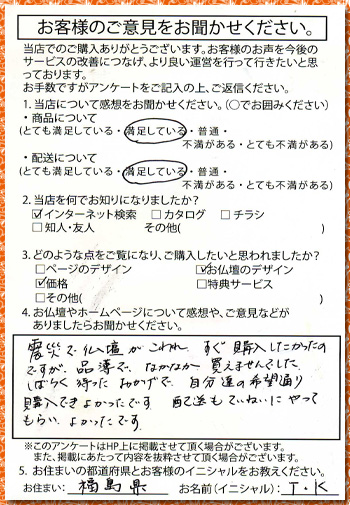 お客様のご意見をお聞かせください。
当店でのご購入ありがとうございます。お客様のお声を今後の
サービスの改善につなげ、より良い運営を行って行きたいと思
っております。
お手数ですがアンケートをご記入の上、ご返信ください。
1. 当店について感想をお聞かせください。(○でお囲みください)
・商品について
(とても満足している・満足している・普通・
不満がある・とても不満がある)
・配送について
(とても満足している・満足している・普通・
不満がある・とても不満がある)
2. 当店を何でお知りになりましたか?
☑インターネット検索 □カタログ □チラシ
□知人・友人 その他( )
3. どのような点をご覧になり、ご購入したいと思われましたか?
□ページのデザイン ☑お仏壇のデザイン
☑価格 □特典サービス
□その他( )
4. お仏壇やホームページについて感想や、ご意見などが
ありましたらお聞かせください。
震災で仏壇がこわれ、すぐ購入したかったの
ですが、品薄で、なかなか買えませんでした。
しばらく待ったおかげで、自分達の希望通り
購入できよかったです。配送もていねいにやって
もらい、よかったです。
※このアンケートはHP上に掲載させて頂く場合がございます。
また、掲載にあたって内容を抜粋させて頂く場合がございます。
5. お住まいの都道府県とお客様のイニシャルをお教えください。
お住まい: 福島県 お名前(イニシャル): T・K